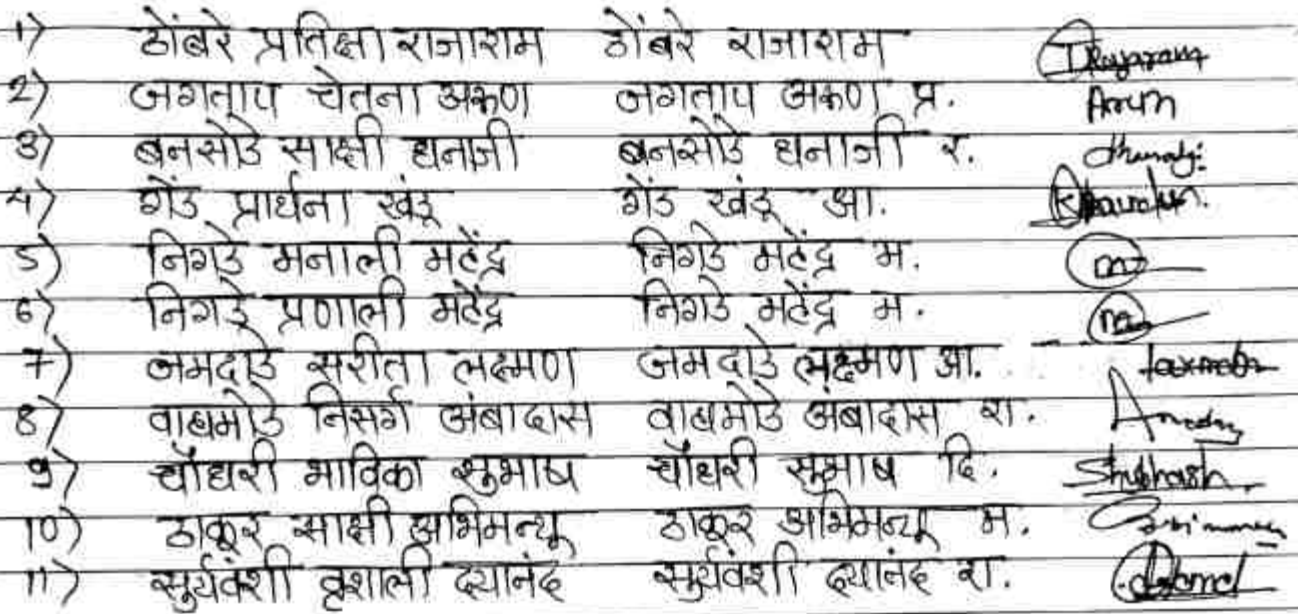 1) ठोंबरे प्रतिक्षा राजाराम ठोंबरे राजाराम Rajaram
2) जगताप चेतना अरुण जगताप अरुण प्र. Arun
3) बनसोडे साक्षी धनाजी बनसोडे धनाजी र. dhanaji
4) गेंड प्रार्थना खंडू गेंड खंडू आ.
5) निगडे मनाली महेंद्र निगडे महेंद्र म.
6) निगडे प्रणाली महेंद्र निगडे महेंद्र म.
7) जमदाडे सरीता लक्ष्मण जमदाडे लक्ष्मण आ. laxman
8) वाघमोडे निसर्ग अंबादास वाघमोडे अंबादास रा.
9) चौधरी भाविका सुभाष चौधरी सुभाष दि. Shubhash
10) ठाकूर साक्षी अभिमन्यू ठाकूर अभिमन्यू म.
11) सुर्यवंशी वृशाली दयानंद सुर्यवंशी दयानंद रा.